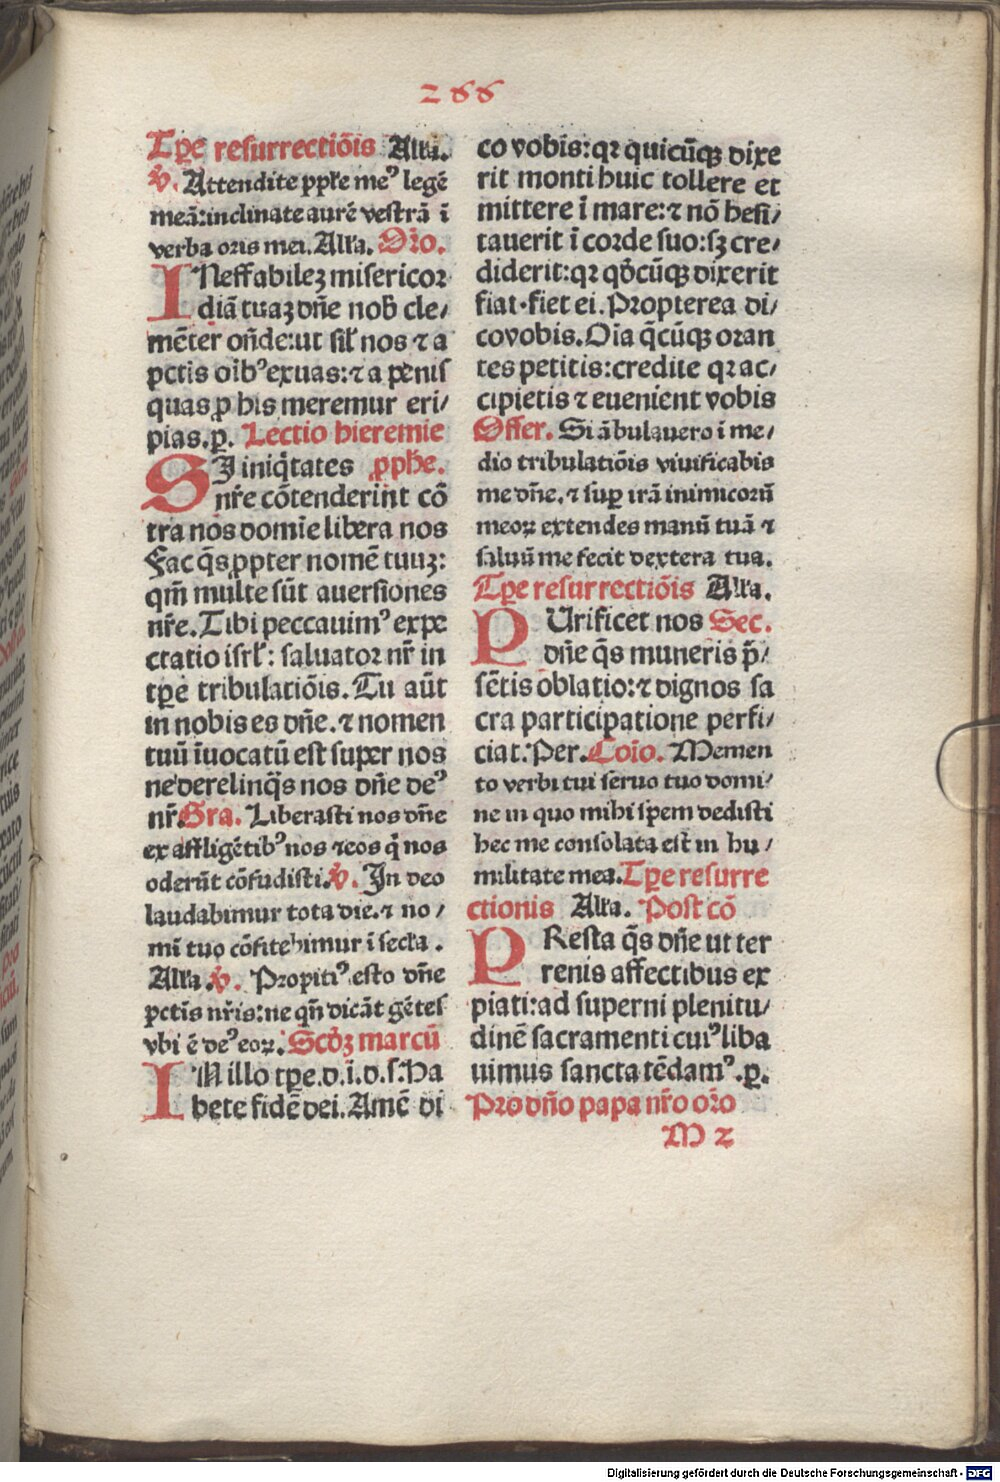 266
Tꝑe resurrectiõis Alła.
℣. Attendite ppłe meꝰ legē
meã:inclinate aurē vestrã ī
verba oris mei. Alła. Orō.
INeffabilez misericor
diã tuaz dñe nob̃ cle⸗
mēter oñde:ut sił nos ⁊ a
pctis oib̃ꝰ exuas:⁊ a penis
quas ꝓ his meremur eri⸗
pias.ꝑ. Lectio hieremie
SI iniq̃tates ꝓphē.
nr̃e cõtenderint cõ
tra nos domie libera nos
Fac q̃s ꝓpter nomē tuuz:
qm̃ multe sũt auersiones
nr̃e. Tibi peccauimꝰ expe
ctatio isrł: saluator nr̃ in
tꝑe tribulatiõis. Tu aũt
in nobis es dñe. ⁊ nomen
tuũ īuocatũ est super nos
ne derelinq̃s nos dñe deꝰ
nr̃. Gra. Liberasti nos dñe
ex affligētibꝰ nos ⁊ eos q̃ nos
oderũt cõfudisti. ℣. In deo
laudabimur tota die.⁊ no⸗
mī tuo cõfitebimur ī secła.
Alła. ℣. Propitiꝰ esto dñe
pctis nr̃is:ne qñ dicãt gētes
vbi ē deꝰ eoꝝ. Scd̃z marcũ
IN illo tꝑe.d.i.d.s. Ha
bete fidē dei. Amē di
co vobis:qꝛ quicũqꝫ dixe
rit monti huic tollere et
mittere ī mare:⁊ nõ hesi⸗
tauerit ī corde suo:sꝫ cre⸗
diderit:qꝛ qd̃cũqꝫ dixerit
fiat·fiet ei. Propterea di⸗
covobis. Oĩa q̃cũqꝫ oran
tes petitis:credite qꝛ ac⸗
cipietis ⁊ euenient vobis
Offer. Si ãbulauero ī me⸗
dio tribulatiõis viuificabis
me dñe, ⁊ suꝑ irã inimicorũ
meoꝝ extendes manũ tuã ⁊
saluũ me fecit dextera tua.
Tꝑe resurrectiõis Alła.
PUrificet nos Sec.
dñe q̃s muneris p̃⸗
sētis oblatio:⁊ dignos sa
cra participatione perfi⸗
ciat. Per. Coĩo. Memen
to verbi tui seruo tuo domi⸗
ne in quo mihi spem dedisti
hec me consolata est in hu⸗
militate mea. Tꝑe resurre
ctionis Alła. Post cõ
PResta q̃s dñe ut ter
renis affectibus ex
piati:ad superni plenitu⸗
dinē sacramenti cuiꝰ liba
uimus sancta tēdamꝰ.ꝑ.
Pro dño papa nr̃o orõ
M 2
Digitalisierung gefördert durch die Deutsche Forschungsgemeinschaft - DFG